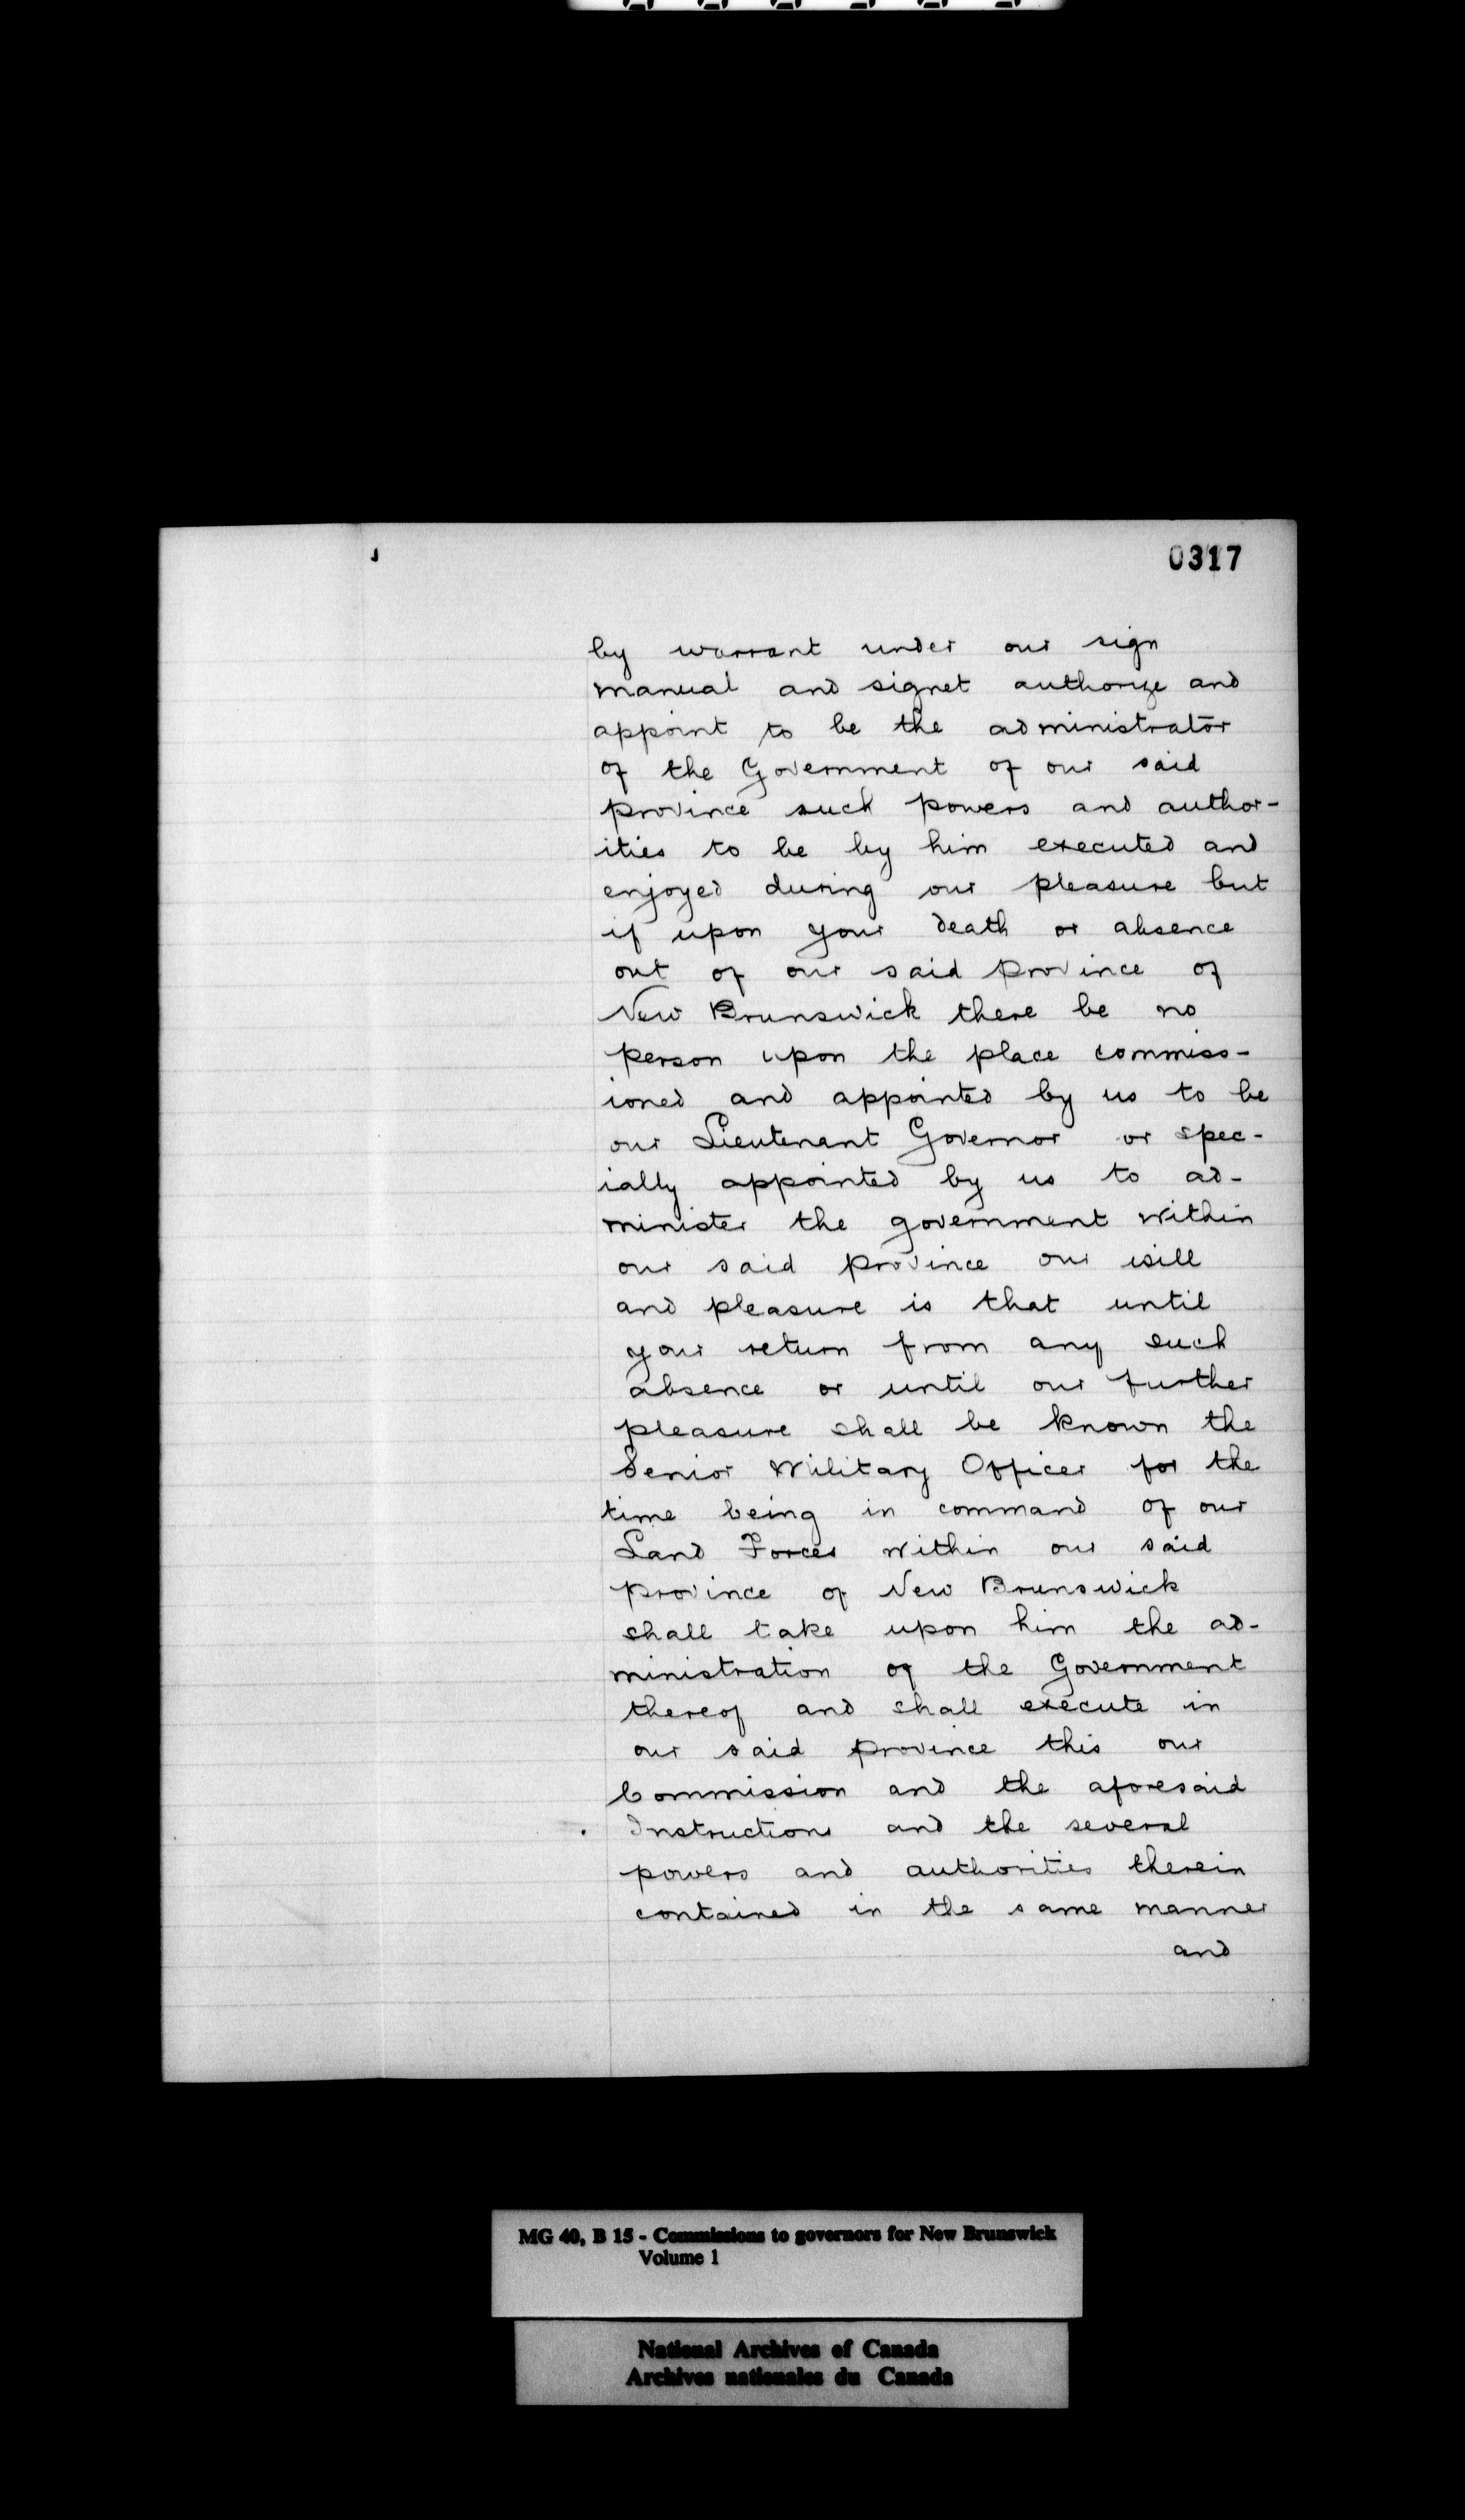 0317
by warrant under our sign
manual and signet authorize and
appoint to be the administrator
of the Government of our said
province such powers and author-
ities to be by him executed and
enjoyed during our pleasure but
if upon your death or absence
out of our said province of
New Brunswick there be no
person upon the place commiss-
ioned and appointed by us to be
our Lieutenant Governor or spec-
ially appointed by us to ad-
minister the government within
our said province our will
and pleasure is that until
your return from any such
absence or until our further
pleasure shall be known the
Senior Military Officer for the
time being in command of our
Land Forces within our said
province of New Brunswick
shall take upon him the ad-
ministration of the Government
thereof and shall execute in
our said province this our
Commission and the aforesaid
Instructions and the several
powers and authorities therein
contained in the same manner
and
MG 40, B 15 - Commissions to governors for New Brunswick
Volume 1
National Archives of Canada
Archives nationales du Canada